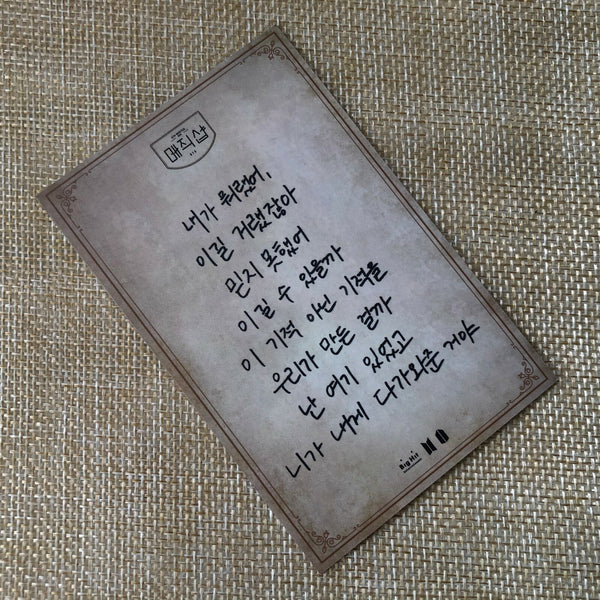 매직샵
내가 뭐랬어,
이길 거랬잖아
믿지 못했어
이길 수 있을까
이 기적 아닌 기적을
우리가 만든 걸까
난 여기 있었고
니가 내게 다가와준 거야
BigHit